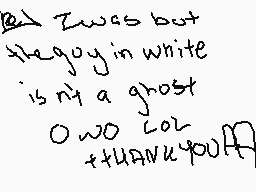 I was but
the guy in white
isn't a ghost
OwO LOL
++THANK YOU